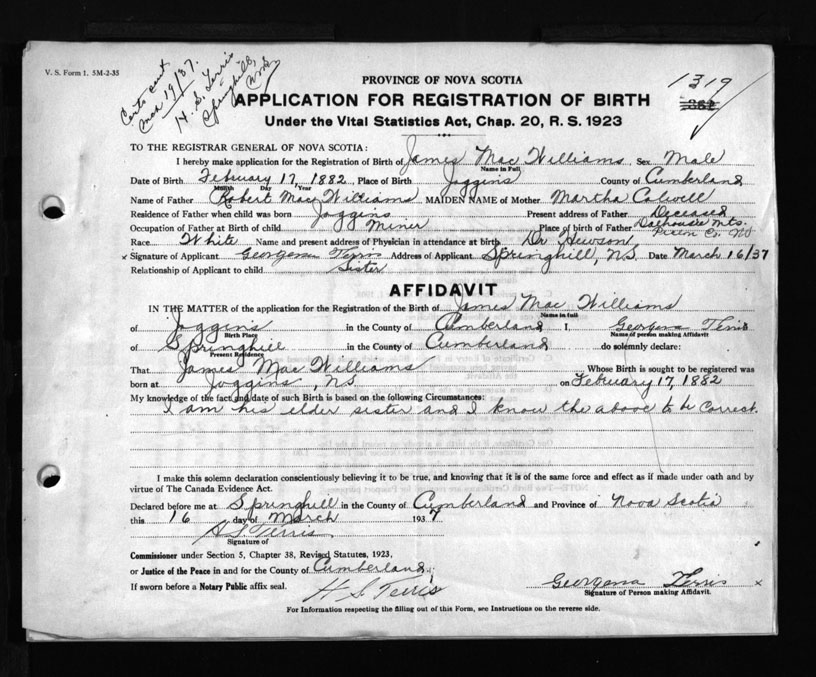 V. S. Form 1. 5M-2-35
Certs sent
Mar 19/37.
H. S. Terris
Springhill,
PROVINCE OF NOVA SCOTIA
1319
APPLICATION FOR REGISTRATION OF BIRTH
362
Under the Vital Statistics Act, Chap. 20, R. S. 1923
TO THE REGISTRAR GENERAL OF NOVA SCOTIA:
I hereby make application for the Registration of Birth of James Mac Williams Sex Male
Name in Full
Date of Birth February 17, 1882 Place of Birth Joggins County of Cumberland
Month Day Year
Name of Father Robert Mac Williams MAIDEN NAME of Mother Martha Colwell
Residence of Father when child was born Joggins Present address of Father Deceased
Occupation of Father at Birth of child Miner Place of birth of Father Dalhousie Mts.
Pictou Co. NS
Race White Name and present address of Physician in attendance at birth Dr Hewson
x Signature of Applicant Georgena Terris Address of Applicant Springhill, N.S. Date March 16/37
Relationship of Applicant to child Sister
AFFIDAVIT
IN THE MATTER of the application for the Registration of the Birth of James Mac Williams
Name in full
of Joggins in the County of Cumberland I, Georgena Terris
Birth Place Name of person making Affidavit
of Springhill in the County of Cumberland do solemnly declare:
Present Residence
That James Mac Williams Whose Birth is sought to be registered was
born at Joggins, N.S. on February 17, 1882
My knowledge of the fact and date of such Birth is based on the following Circumstances:
I am his elder sister and I know the above to be correct.
I make this solemn declaration conscientiously believing it to be true, and knowing that it is of the same force and effect as if made under oath and by
virtue of The Canada Evidence Act.
Declared before me at Springhill in the County of Cumberland and Province of Nova Scotia
this 16 day of March 1937
H S Terris
Signature of
Commissioner under Section 5, Chapter 38, Revised Statutes, 1923,
or Justice of the Peace in and for the County of Cumberland
If sworn before a Notary Public affix seal. H S Terris Georgena Terris x
Signature of Person making Affidavit.
For Information respecting the filling out of this Form, see Instructions on the reverse side.